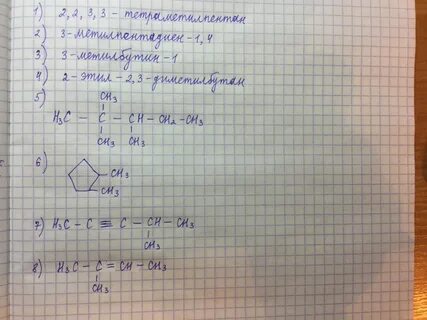 1) 2, 2, 3, 3 - тетраметилпентан
2) 3-метилпентадиен-1,4
3) 3-метилбутин-1
4) 2-этил-2,3-диметилбутан
5) CH₃
H₃C - C - CH - CH₂ - CH₃
CH₃ CH₃
6) CH₃
CH₃
7) H₃C - C ≡ C - CH - CH₃
CH₃
8) H₃C - C = CH - CH₃
CH₃